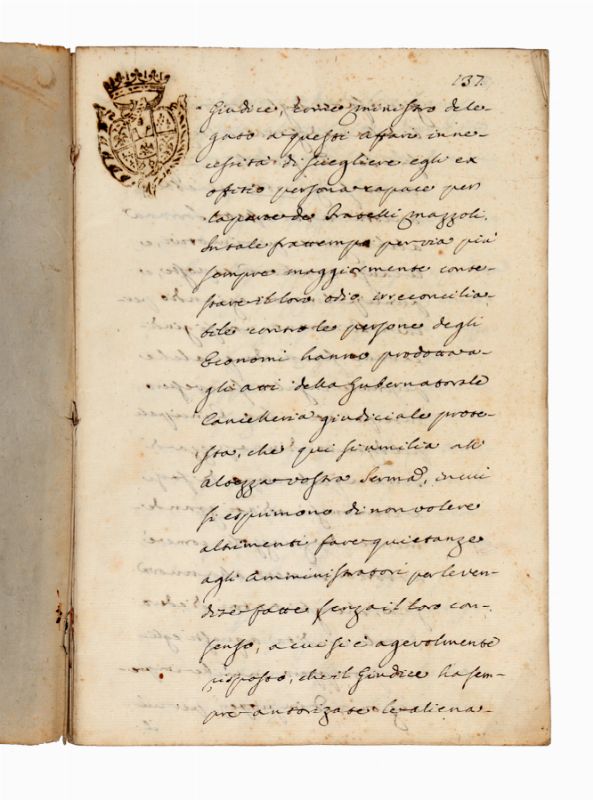 137.
Giudice, e ministro dele-
gato a questi affari in ne-
cessità di scegliere egli ex
offitio persona capace per
la parte de Fratelli Mazzoli.
In tale frattempo per via più
sempre maggiormente conte-
stare il loro odio irreconcilia-
bile contro le persone degli
Economi hanno prodotta a-
gli atti della Gubernatorale
Cancelleria giudiciale prote-
sta, che qui si umilia all'
Altezza vostra Serma, in cui
si esprimono di non volere
altrimenti fare quietanze
agli Amministratori per le ven-
dite fatte senza il loro con-
senso, a cui si è agevolmente
risposto, che il Giudice ha sem-
pre autorizate le aliena-